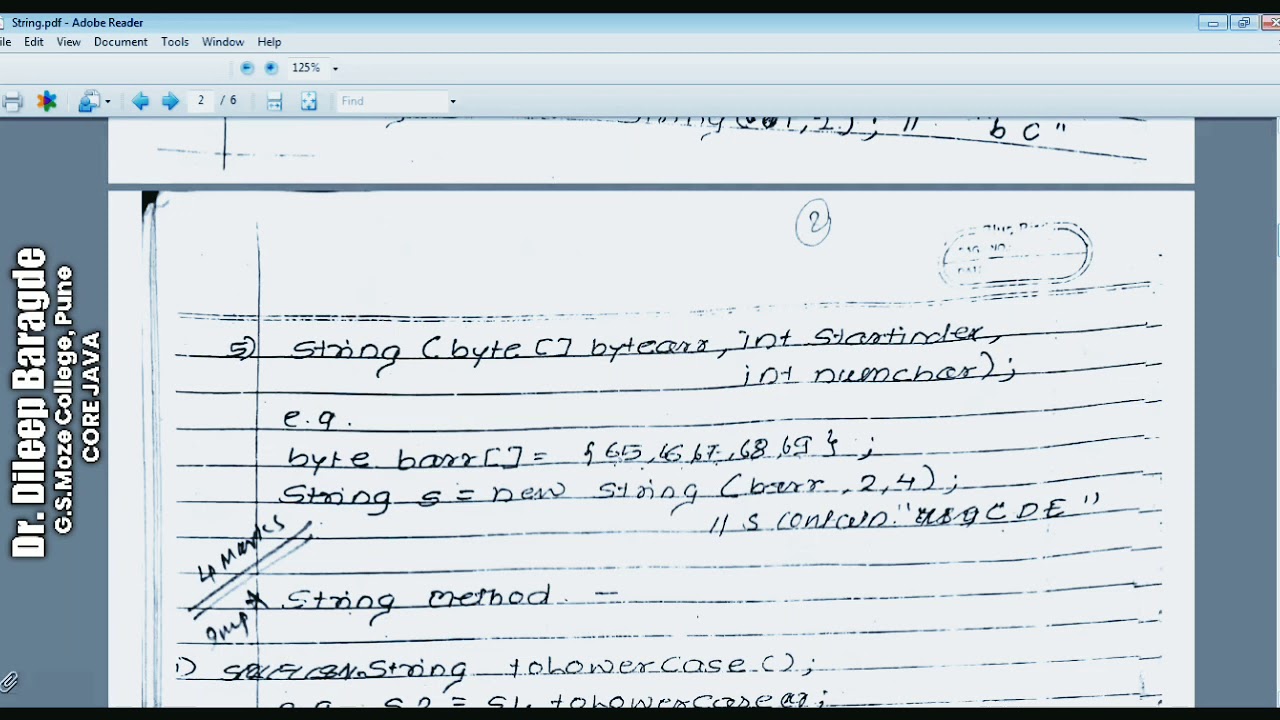 String.pdf - Adobe Reader
ile Edit View Document Tools Window Help
125%
2 / 6 Find
"bc"
2
5) String (byte [] bytearr, int startindex,
int numchar);
e.g.
byte barr[] = {65,66,67,68,69};
String s = new String (barr, 2,4);
// s contain "CDE"
4 Marks
Imp * String method -
1) String toLowerCase();
e.g. S2 = S1. toLowerCase();
Dr. Dileep Baragde
G.S.Moze College, Pune
CORE JAVA